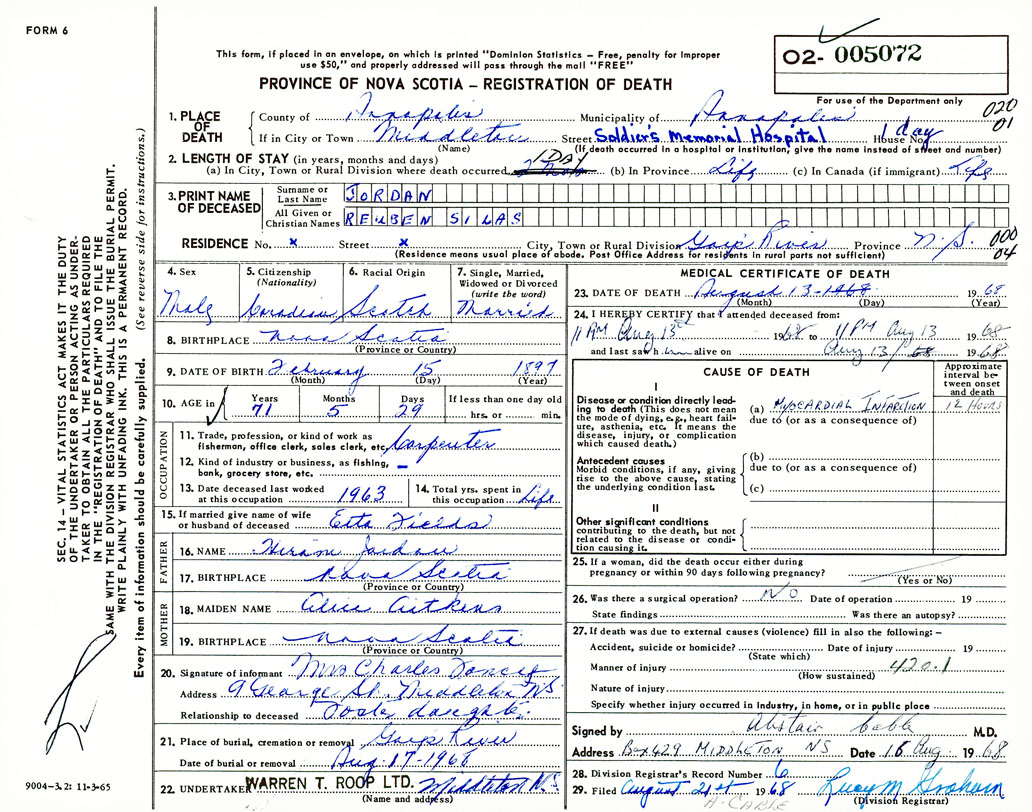 FORM 6
This form, if placed in an envelope, on which is printed "Dominion Statistics – Free, penalty for improper
use $50," and properly addressed will pass through the mail "FREE"
O2- 005072
PROVINCE OF NOVA SCOTIA – REGISTRATION OF DEATH
For use of the Department only
020
01
1. PLACE OF DEATH
County of Annapolis Municipality of Annapolis
If in City or Town Middleton Street Soldier's Memorial Hospital House No. 1 day
(Name) (If death occurred in a hospital or institution, give the name instead of street and number)
2. LENGTH OF STAY (in years, months and days)
(a) In City, Town or Rural Division where death occurred 1 DAY (b) In Province Life (c) In Canada (if immigrant) Life
3. PRINT NAME OF DECEASED
Surname or Last Name JORDAN
All Given or Christian Names REUBEN SILAS
RESIDENCE No. x Street x City, Town or Rural Division River Province N.S.
000
04
(Residence means usual place of abode. Post Office Address for residents in rural parts not sufficient)
4. Sex Male
5. Citizenship (Nationality) Canadian
6. Racial Origin Scotch
7. Single, Married, Widowed or Divorced (write the word) Married
8. BIRTHPLACE Nova Scotia
(Province or Country)
9. DATE OF BIRTH February 15 1897
(Month) (Day) (Year)
10. AGE in Years 71 Months 5 Days 29 If less than one day old
hrs. or min.
OCCUPATION
11. Trade, profession, or kind of work as
fisherman, office clerk, sales clerk, etc. Carpenter
12. Kind of industry or business, as fishing, –
bank, grocery store, etc.
13. Date deceased last worked at this occupation 1963
14. Total yrs. spent in this occupation Life
15. If married give name of wife
or husband of deceased Etta Fields
FATHER
16. NAME Hiram Jordan
17. BIRTHPLACE Nova Scotia
(Province or Country)
MOTHER
18. MAIDEN NAME Alice Aitkens
19. BIRTHPLACE Nova Scotia
(Province or Country)
20. Signature of informant Mrs Charles
Address 9 George St. Middleton NS
Relationship to deceased Foster daughter
21. Place of burial, cremation or removal River
Date of burial or removal Aug. 17-1968
22. UNDERTAKER WARREN T. ROOP LTD. Middleton N.S.
(Name and address)
MEDICAL CERTIFICATE OF DEATH
23. DATE OF DEATH August 13-1968 1968
(Month) (Day) (Year)
24. I HEREBY CERTIFY that I attended deceased from:
11 PM Aug 13th 1968 to 11 PM Aug 13 1968
and last saw him alive on Aug 13/68 1968
CAUSE OF DEATH
Approximate interval between onset and death
I
Disease or condition directly leading to death (This does not mean the mode of dying, e.g., heart failure, asthenia, etc. It means the disease, injury, or complication which caused death.)
(a) MYOCARDIAL INFARCTION 12 HOURS
due to (or as a consequence of)
Antecedent causes
Morbid conditions, if any, giving rise to the above cause, stating the underlying condition last.
(b)
due to (or as a consequence of)
(c)
II
Other significant conditions
contributing to the death, but not related to the disease or condition causing it.
25. If a woman, did the death occur either during
pregnancy or within 90 days following pregnancy?
(Yes or No)
26. Was there a surgical operation? NO Date of operation 19
State findings Was there an autopsy?
27. If death was due to external causes (violence) fill in also the following: –
Accident, suicide or homicide? Date of injury 19
(State which)
Manner of injury 420.1
(How sustained)
Nature of injury
Specify whether injury occurred in Industry, in home, or in public place
Signed by M.D.
Address Box 429 MIDDLETON NS Date 16 Aug 1968
28. Division Registrar's Record Number 6
29. Filed August 21st 1968 Lucy M Graham
(Division Registrar)
A. CABLE
SEC. 14 – VITAL STATISTICS ACT MAKES IT THE DUTY
OF THE UNDERTAKER OR PERSON ACTING AS UNDER-
TAKER TO OBTAIN ALL THE PARTICULARS REQUIRED
IN THE "REGISTRATION OF DEATH" AND TO FILE THE
SAME WITH THE DIVISION REGISTRAR WHO SHALL ISSUE THE BURIAL PERMIT.
WRITE PLAINLY WITH UNFADING INK. THIS IS A PERMANENT RECORD.
Every item of information should be carefully supplied. (See reverse side for instructions.)
9004-3.2: 11-3-65